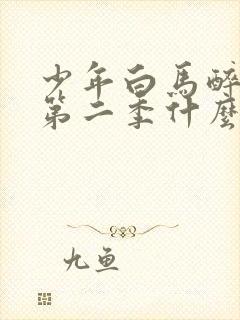 少年白馬醉
第二季什麼
九鱼